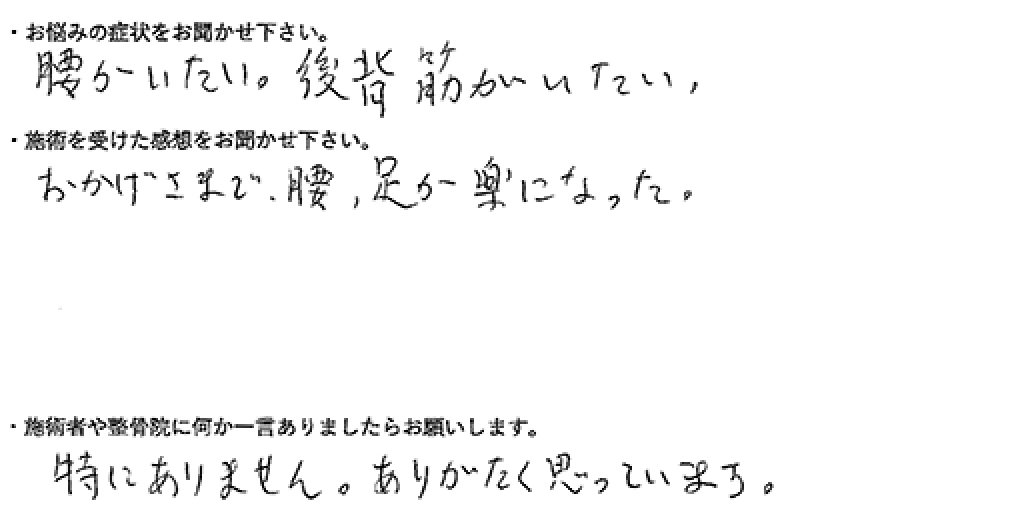 ・お悩みの症状をお聞かせ下さい。
腰がいたい。後背筋がいたい,
・施術を受けた感想をお聞かせ下さい。
おかげさまで、腰,足が楽になった。
・施術者や整骨院に何か一言ありましたらお願いします。
特にありません。ありがたく思っています。